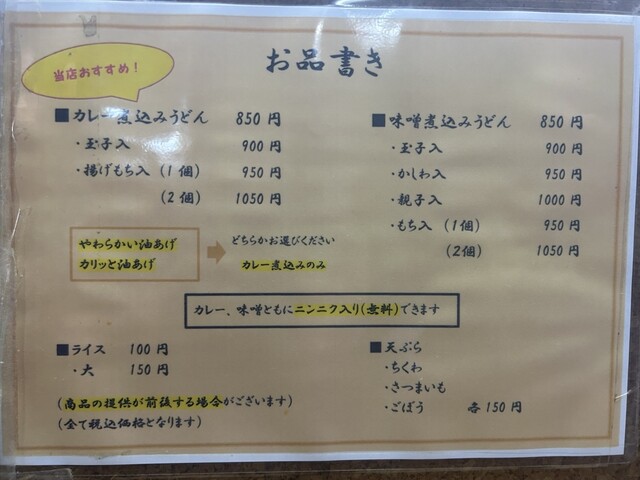 お品書き
当店おすすめ！
■カレー煮込みうどん 850円
・玉子入 900円
・揚げもち入（1個） 950円
（2個） 1050円
やわらかい油あげ
カリッと油あげ
どちらかお選びください
カレー煮込みのみ
■味噌煮込みうどん 850円
・玉子入 900円
・かしわ入 950円
・親子入 1000円
・もち入（1個） 950円
（2個） 1050円
カレー、味噌ともにニンニク入り（無料）できます
■ライス 100円
・大 150円
（商品の提供が前後する場合がございます）
（全て税込価格となります）
■天ぷら
・ちくわ
・さつまいも
・ごぼう 各150円